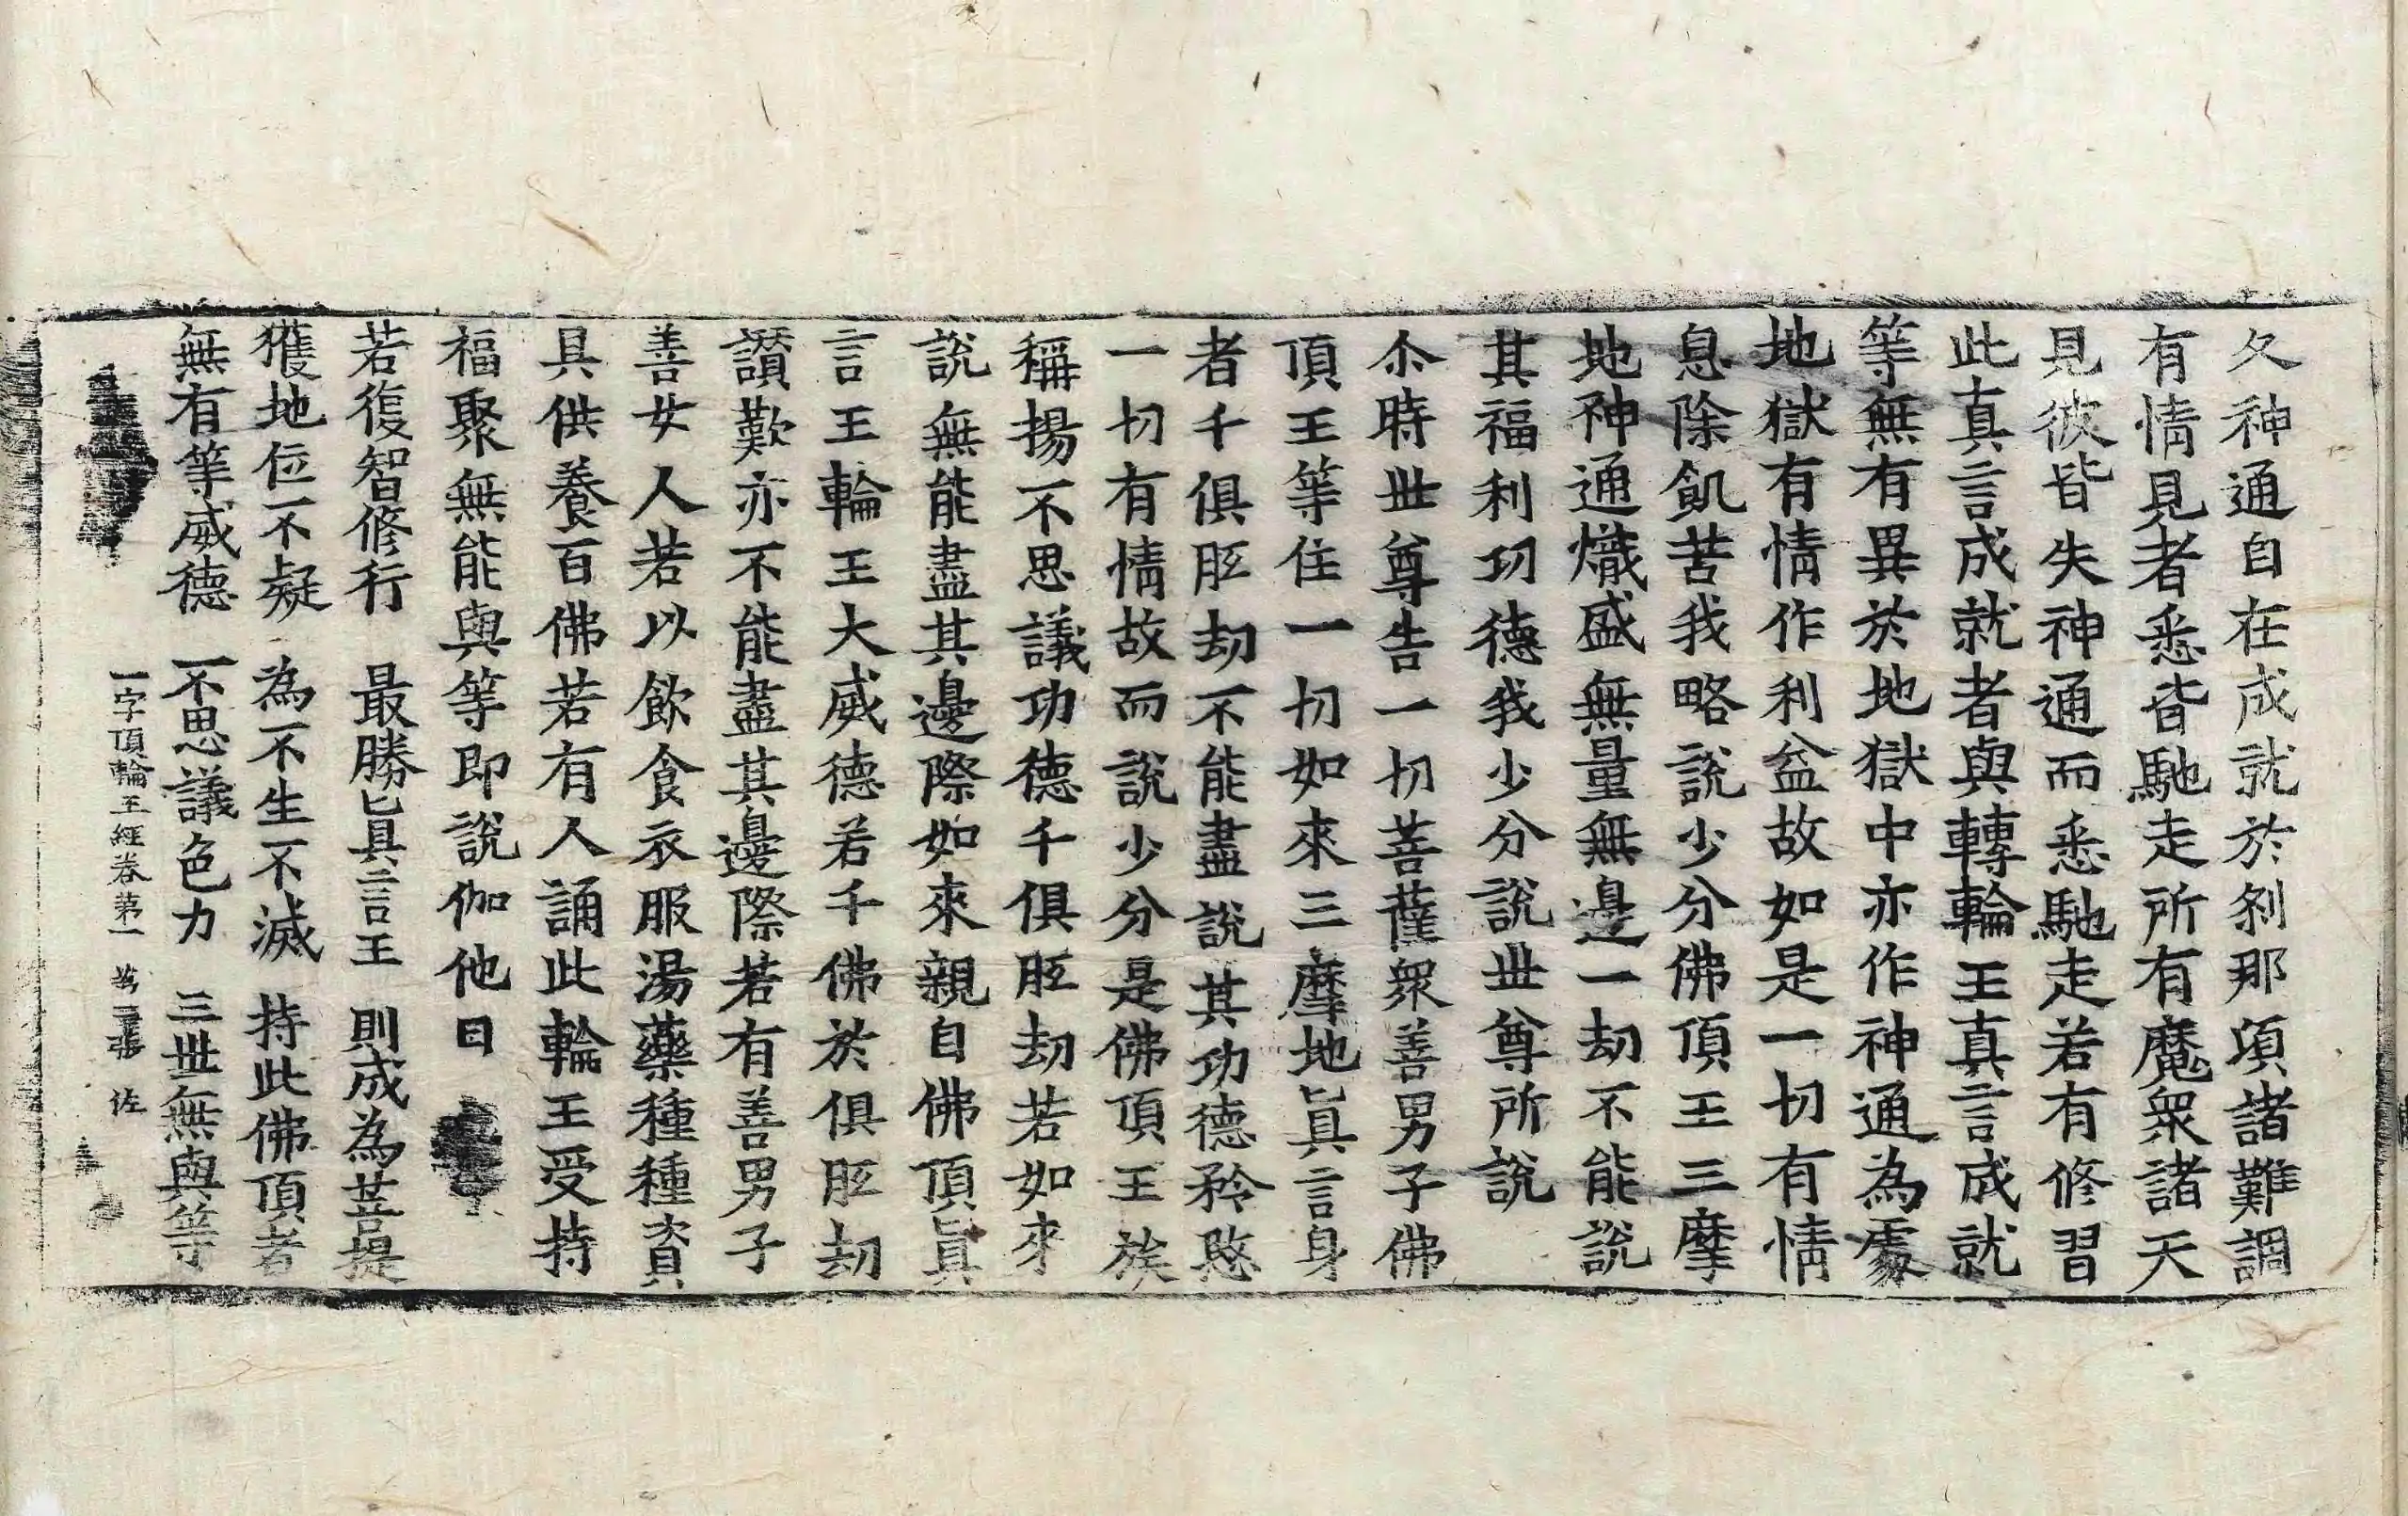 久神通自在成就於刹那項諸難調
有情見者悉皆馳走所有魔衆諸天
見彼皆失神通而悉馳走若有修習
此真言成就者與轉輪王真言成就
等無有異於地獄中亦作神通為處
地獄有情作利益故如是一切有情
息除飢苦我略說少分佛頂王三摩
地神通熾盛無量無邊一劫不能說
其福利功德我少分說世尊所說
尒時世尊告一切菩薩衆善男子佛
頂王等住一切如來三摩地真言身
者千俱胝劫不能盡說其功德矜愍
一切有情故而說少分是佛頂王族
稱揚不思議功德千俱胝劫若如來
說無能盡其邊際如來親自佛頂眞
言王輪王大威德若千佛於俱胝劫
讃歎亦不能盡其邊際若有善男子
善女人若以飲食衣服湯藥種種資
具供養百佛若有人誦此輪王受持
福聚無能與等即說伽他曰
若復智修行　最勝眞言王　則成為菩提
獲地位不疑　為不生不滅　持此佛頂者
無有等威德　不思議色力　三世無與等
一字頂輪王經卷第一　張　佐